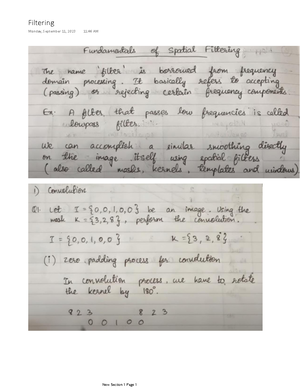 Filtering
Monday, September 12, 2022 11:44 AM
Fundamentals of Spatial Filtering
The name 'filter' is borrowed from frequency
domain processing. It basically refers to accepting
(passing) or rejecting certain frequency components
Ex: A filter that passes low frequencies is called
lowpass filter.
We can accomplish a similar smoothing directly
on the image itself using spatial filters
(also called masks, kernels, templates and windows)
1) Convolution
Let I = {0,0,1,0,0} be an image. Using the
mask K = {3,2,8}, perform the convolution.
I = {0,0,1,0,0} K = {3, 2, 8}
(i) zero padding process for convolution
In convolution process, we have to rotate
the kernel by 180°.
8 2 3 8 2 3
0 0 1 0 0
New Section 1 Page 1